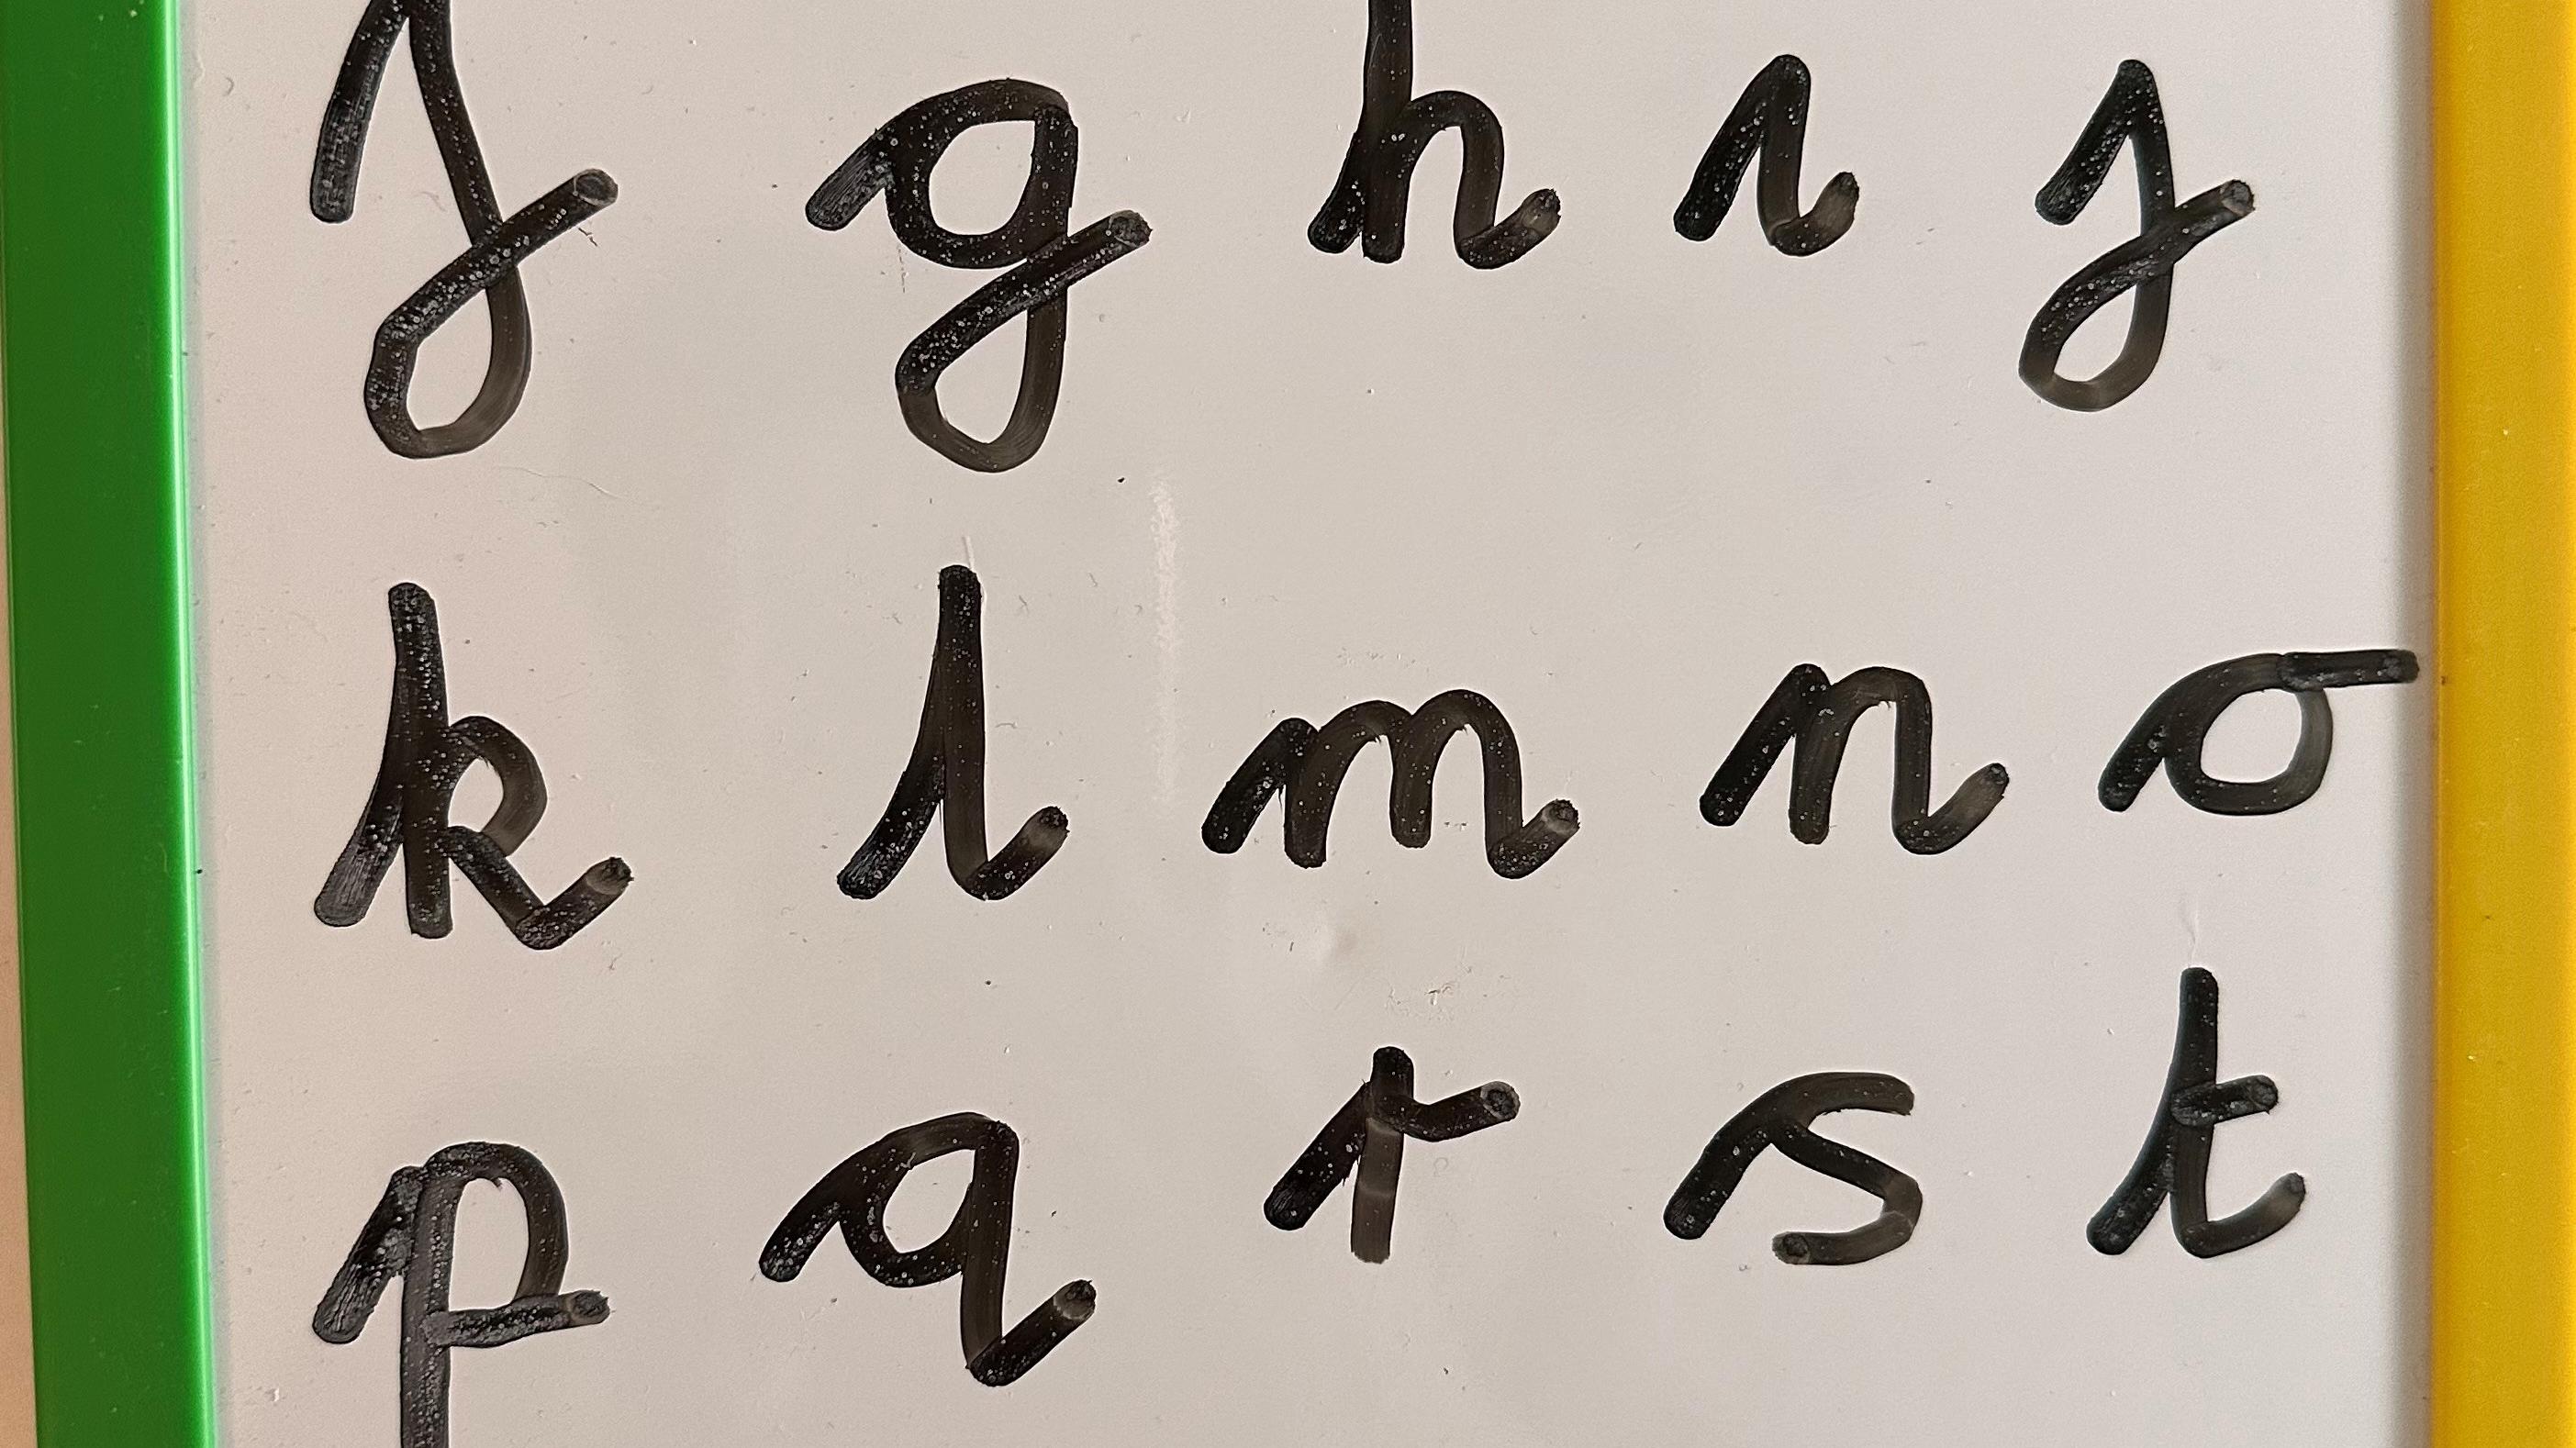 f g h ı ȷ
k l m n o
p q r s t